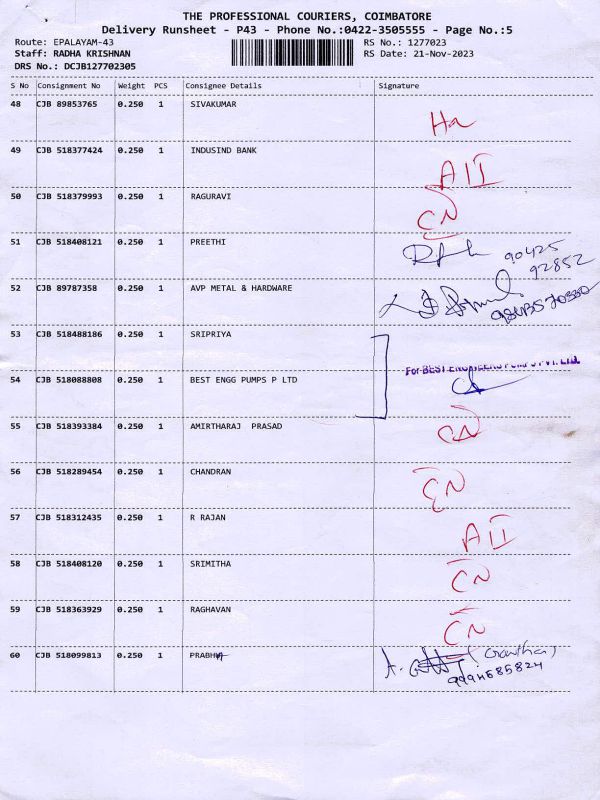 THE PROFESSIONAL COURIERS, COIMBATORE
Delivery Runsheet - P43 - Phone No.:0422-3505555 - Page No.:5
Route: EPALAYAM-43 RS No.: 1277023
Staff: RADHA KRISHNAN RS Date: 21-Nov-2023
DRS No.: DCJB127702305
S No Consignment No Weight PCS Consignee Details Signature
48 CJB 89853765 0.250 1 SIVAKUMAR
49 CJB 518377424 0.250 1 INDUSIND BANK AII
50 CJB 518379993 0.250 1 RAGURAVI CN
51 CJB 518408121 0.250 1 PREETHI 90425
92852
52 CJB 89787358 0.250 1 AVP METAL & HARDWARE
53 CJB 518488186 0.250 1 SRIPRIYA
For BEST ENGINEERS PUMPS PVT. LTD.
54 CJB 518088808 0.250 1 BEST ENGG PUMPS P LTD
55 CJB 518393384 0.250 1 AMIRTHARAJ PRASAD CN
56 CJB 518289454 0.250 1 CHANDRAN CN
57 CJB 518312435 0.250 1 R RAJAN AII
58 CJB 518408120 0.250 1 SRIMITHA CN
59 CJB 518363929 0.250 1 RAGHAVAN CN
60 CJB 518099813 0.250 1 PRABHA